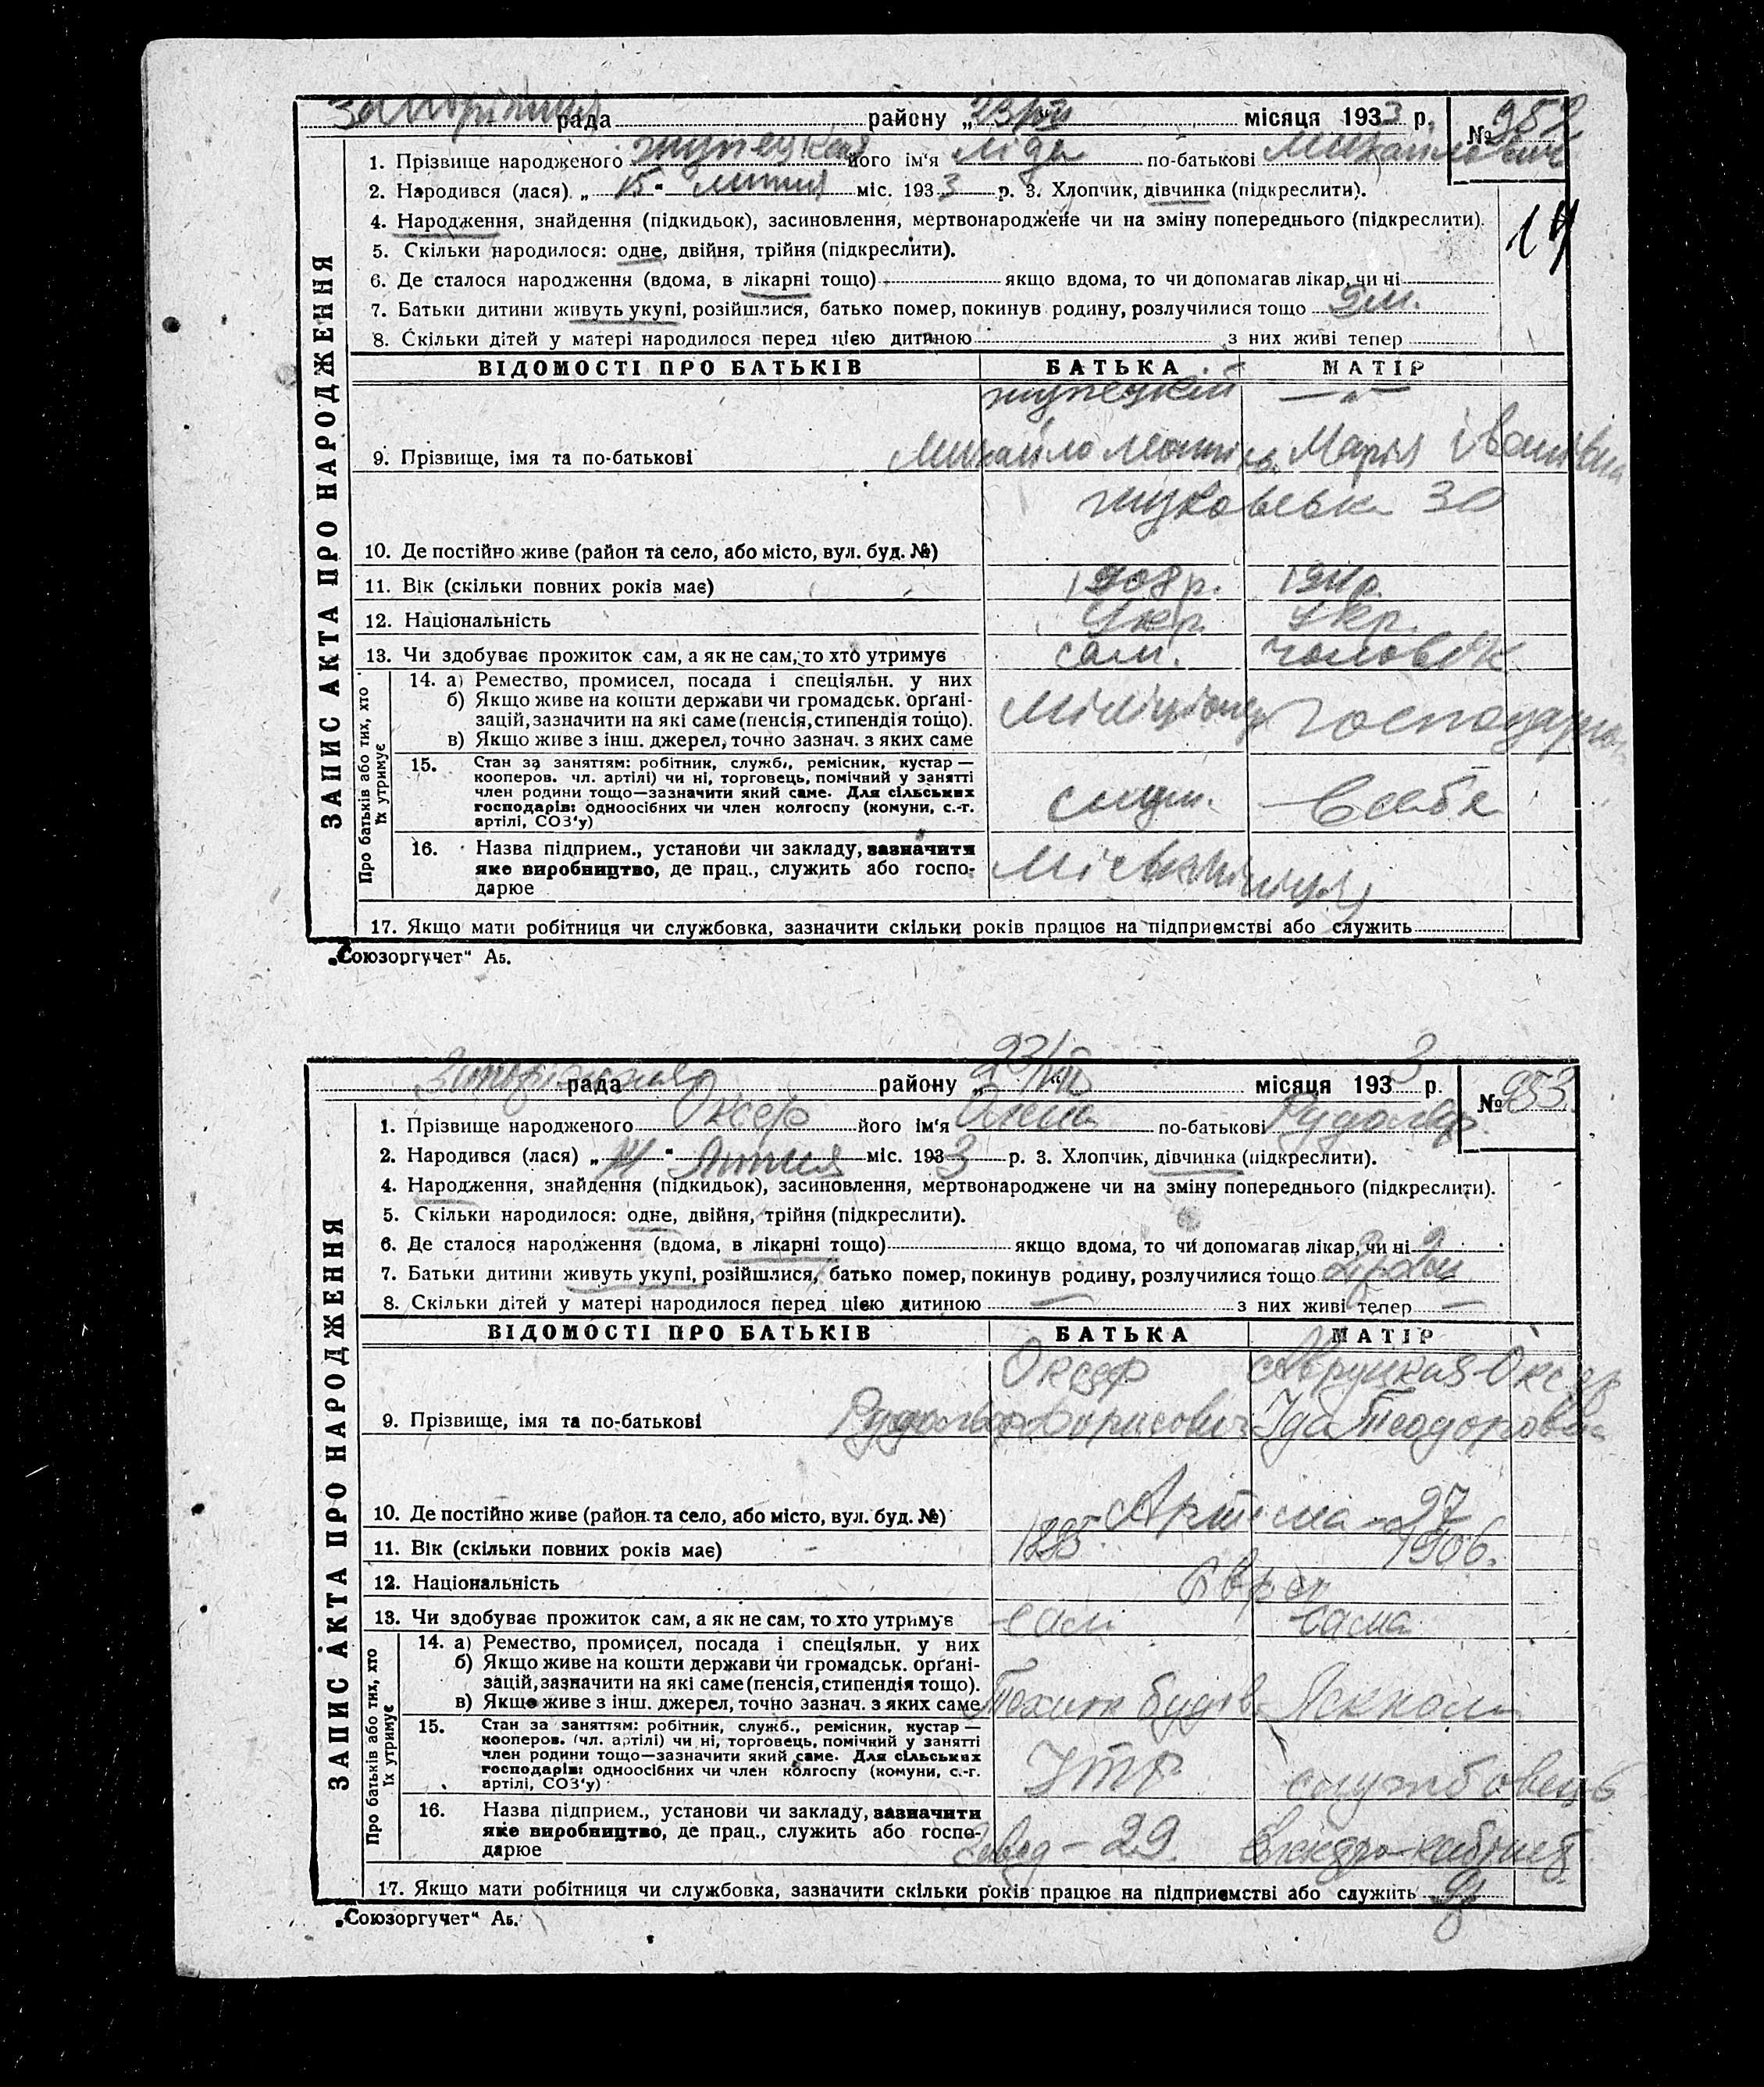 рада району „23/VII" місяця 1933 р. № 952
1. Прізвище народженого його ім'я Ліда по-батькові
2. Народився (лася) „15" липня міс. 1933 р. 3. Хлопчик, дівчинка (підкреслити).
14
4. Народження, знайдення (підкидьок), засиновлення, мертвонароджене чи на зміну попереднього (підкреслити).
5. Скільки народилося: одне, двійня, трійня (підкреслити).
6. Де сталося народження (вдома, в лікарні тощо) якщо вдома, то чи допомагав лікар, чи ні
7. Батьки дитини живуть укупі, розійшлися, батько помер, покинув родину, розлучилися тощо
8. Скільки дітей у матері народилося перед цією дитиною з них живі тепер
ЗАПИС АКТА ПРО НАРОДЖЕННЯ
ВІДОМОСТІ ПРО БАТЬКІВ БАТЬКА МАТІР
— " —
9. Прізвище, імя та по-батькові Михайло Марія Іванівна
30
10. Де постійно живе (район та село, або місто, вул. буд. №)
11. Вік (скільки повних років має) 1908 р. 1911 р.
12. Національність Укр. Укр.
13. Чи здобуває прожиток сам, а як не сам, то хто утримує сам. чоловік
Про батьків або тих, хто їх утримує
14. а) Ремество, промисел, посада і спеціяльн. у них
б) Якщо живе на кошти держави чи громадськ. орґані-
зацій, зазначити на які саме (пенсія, стипендія тощо).
в) Якщо живе з інш. джерел, точно зазнач. з яких саме
15. Стан за заняттям: робітник, служб., ремісник, кустар —
кооперов. чл. артілі) чи ні, торговець, помічний у занятті
член родини тощо—зазначити який саме. Для сільських
господарів: одноосібних чи член колгоспу (комуни, с.-г.
артілі, СОЗ'у) служ. в себе
16. Назва підприєм., установи чи закладу, зазначити
яке виробництво, де прац., служить або госпо-
дарює
17. Якщо мати робітниця чи службовка, зазначити скільки років працює на підприємстві або служить
„Союзоргучет" А5.
рада району „23/VII" місяця 1933 р. № 953
1. Прізвище народженого Оксер його ім'я по-батькові Рудольф.
2. Народився (лася) „14" липня міс. 1933 р. 3. Хлопчик, дівчинка (підкреслити).
4. Народження, знайдення (підкидьок), засиновлення, мертвонароджене чи на зміну попереднього (підкреслити).
5. Скільки народилося: одне, двійня, трійня (підкреслити).
6. Де сталося народження (вдома, в лікарні тощо) якщо вдома, то чи допомагав лікар, чи ні
7. Батьки дитини живуть укупі, розійшлися, батько помер, покинув родину, розлучилися тощо
8. Скільки дітей у матері народилося перед цією дитиною — з них живі тепер —
ЗАПИС АКТА ПРО НАРОДЖЕННЯ
ВІДОМОСТІ ПРО БАТЬКІВ БАТЬКА МАТІР
Оксер Авруцкая-Оксер
9. Прізвище, імя та по-батькові Рудольф Борисович Іда Теодоровна
10. Де постійно живе (район та село, або місто, вул. буд. №) Артема 97
11. Вік (скільки повних років має) 1895 1906.
12. Національність Євреи
13. Чи здобуває прожиток сам, а як не сам, то хто утримує сам сама
Про батьків або тих, хто їх утримує
14. а) Ремество, промисел, посада і спеціяльн. у них
б) Якщо живе на кошти держави чи громадськ. орґані-
зацій, зазначити на які саме (пенсія, стипендія тощо).
в) Якщо живе з інш. джерел, точно зазнач. з яких саме
15. Стан за заняттям: робітник, служб., ремісник, кустар —
кооперов. (чл. артілі) чи ні, торговець, помічний у занятті
член родини тощо—зазначити який саме. Для сільських
господарів: одноосібних чи член колгоспу (комуни, с.-г.
артілі, СОЗ'у) ІТР службовець
16. Назва підприєм., установи чи закладу, зазначити
яке виробництво, де прац., служить або госпо-
дарює Завод - 29.
17. Якщо мати робітниця чи службовка, зазначити скільки років працює на підприємстві або служить
„Союзоргучет" А5.